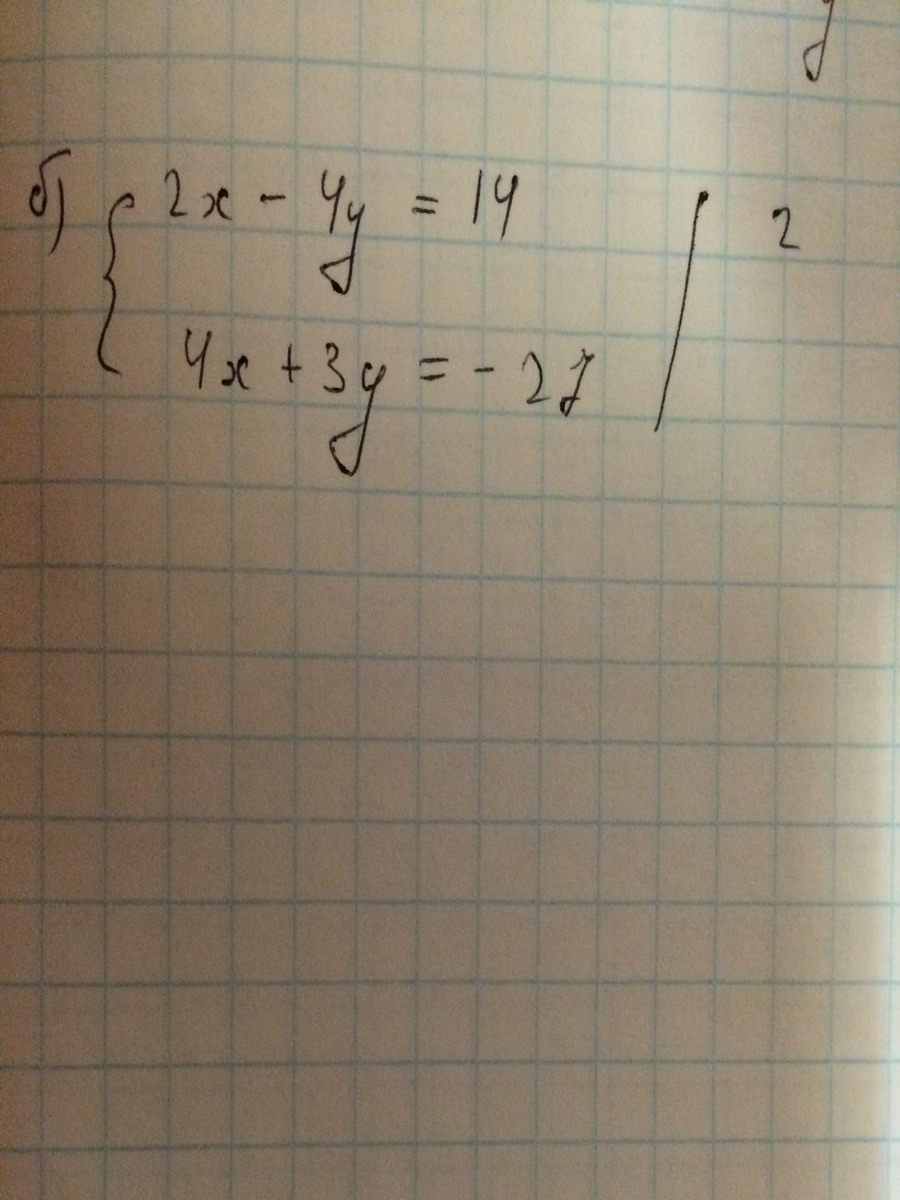 y
б) { 2x - 4y = 14 | 2
4x + 3y = - 27